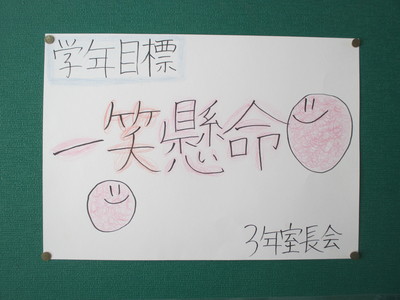 学年目標
一笑懸命
3年室長会